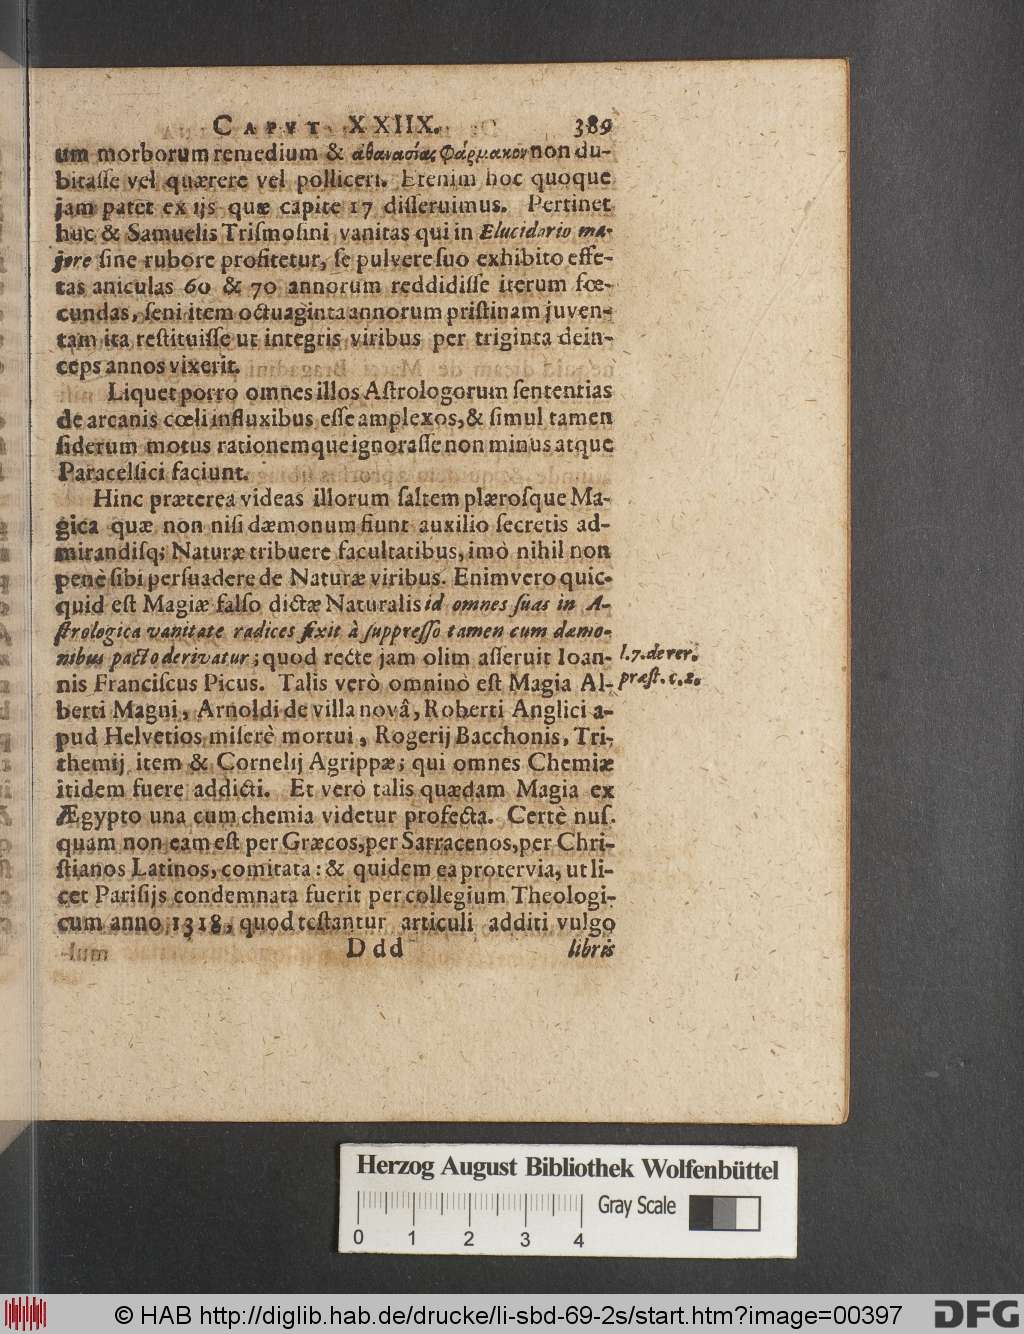 CAPVT XXIIX. 389
um morborum remedium & ἀθανασίας φάρμακον non du-
bitaſſe vel quærere vel polliceri. Etenim hoc quoque
jam patet ex ijs quæ capite 17 diſſeruimus. Pertinet
huc & Samuelis Triſmoſini vanitas qui in Elucidario ma-
jore ſine rubore profitetur, ſe pulvere ſuo exhibito effe-
tas aniculas 60 & 70 annorum reddidiſſe iterum fœ-
cundas, ſeni item octuaginta annorum priſtinam juven-
tam ita reſtituiſſe ut integris viribus per triginta dein-
ceps annos vixerit.
Liquet porro omnes illos Aſtrologorum ſententias
de arcanis cœli influxibus eſſe amplexos, & ſimul tamen
ſiderum motus rationemque ignoraſſe non minus atque
Paracelſici faciunt.
Hinc præterea videas illorum ſaltem plæroſque Ma-
gica quæ non niſi dæmonum fiunt auxilio ſecretis ad-
mirandiſq; Naturæ tribuere facultatibus, imò nihil non
penè ſibi perſuadere de Naturæ viribus. Enimvero quic-
quid eſt Magiæ falſo dictæ Naturalis id omnes ſuas in A-
ſtrologica vanitate radices fixit à ſuppreſſo tamen cum dæmo-
nibus pacto derivatur; quod recte jam olim aſſeruit Ioan-
l. 7. de rer.
nis Franciſcus Picus. Talis verò omninò eſt Magia Al-
præſt. c. 2.
berti Magni, Arnoldi de villa novâ, Roberti Anglici a-
pud Helvetios miſerè mortui, Rogerij Bacchonis, Tri-
themij item & Cornelij Agrippæ; qui omnes Chemiæ
itidem fuere addicti. Et verò talis quædam Magia ex
Ægypto una cum chemia videtur profecta. Certè nuſ-
quam non eam eſt per Græcos, per Sarracenos, per Chri-
ſtianos Latinos, comitata: & quidem ea protervia, ut li-
cet Pariſijs condemnata fuerit per collegium Theologi-
cum anno 1318, quod teſtantur articuli additi vulgo
Ddd libris
Herzog August Bibliothek Wolfenbüttel
Gray Scale
0 1 2 3 4
© HAB http://diglib.hab.de/drucke/li-sbd-69-2s/start.htm?image=00397 DFG